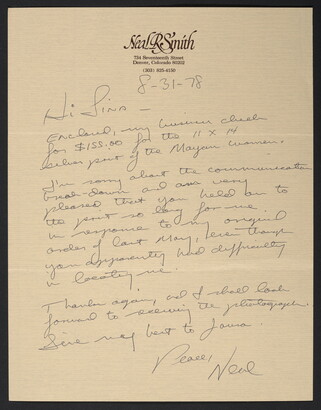 Neal R Smith
734 Seventeenth Street
Denver, Colorado 80202
(303) 825-4150
8-31-78
Hi Lina -
Enclosed, my business check
for $155.00 for the 11 x 14
silver print of the Mayan Women.
I'm sorry about the communicate
break-down and am very
pleased that you held on to
the print so long for me
in response to my original
order of last May, even though
you apparently had difficulty
in locating me.
Thanks again, and I shall look
forward to receiving the photograph.
Give my best to
Peace,
Neal